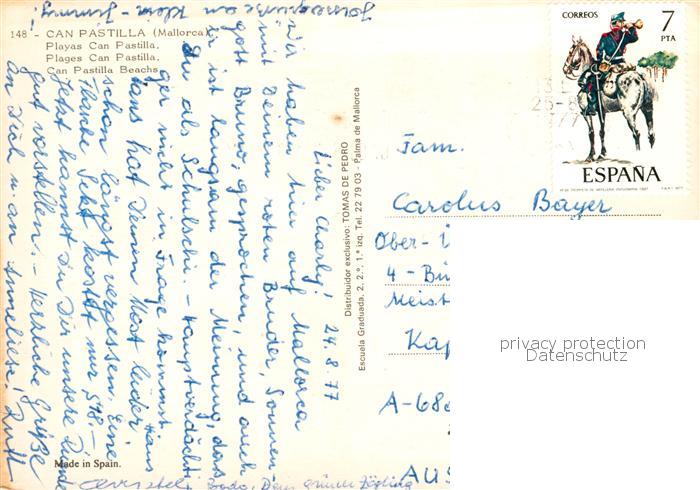 148 - CAN PASTILLA (Mallorca)
Playas Can Pastilla.
Plages Can Pastilla.
Can Pastilla Beachs.
24.8.77
Lieber Charly!
Wir haben hier auf Mallorca
mit Deinem roten Bruder, Sonnen
gott Bruno, gesprochen, und auch
er ist langsam der Meinung, das
Du als Schulschi. - Hauptverdächti
ger nicht in Frage kommst
Hans hat Deinen Most leider
schon längst vergessen. Eine
Flasche Sekt kostet nur 548.-
Jetzt kannst Du Dir unsere Runde
gut vorstellen. - Herzliche Grüße
an Dich u. an Anneliese! Ruth
Hans
an Klein - Jimmy!
Made in Spain.
Distribuidor exclusivo: TOMAS DE PEDRO
Escuela Graduada, 2, 2.º, 1.ª izq. Tel. 22 79 03 - Palma de Mallorca
CORREOS
7
PTA
ESPAÑA
Fam.
Carolus Bayer
Ober-
4 - Bü
Meist
Kap
A-68
AUS
privacy protection
Datenschutz